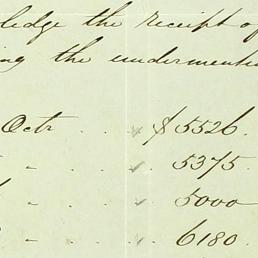 ledge the receipt of
ing the undermenti
Octr . . $ 5526.
" . 5375.
" . 5000
" . 6180.